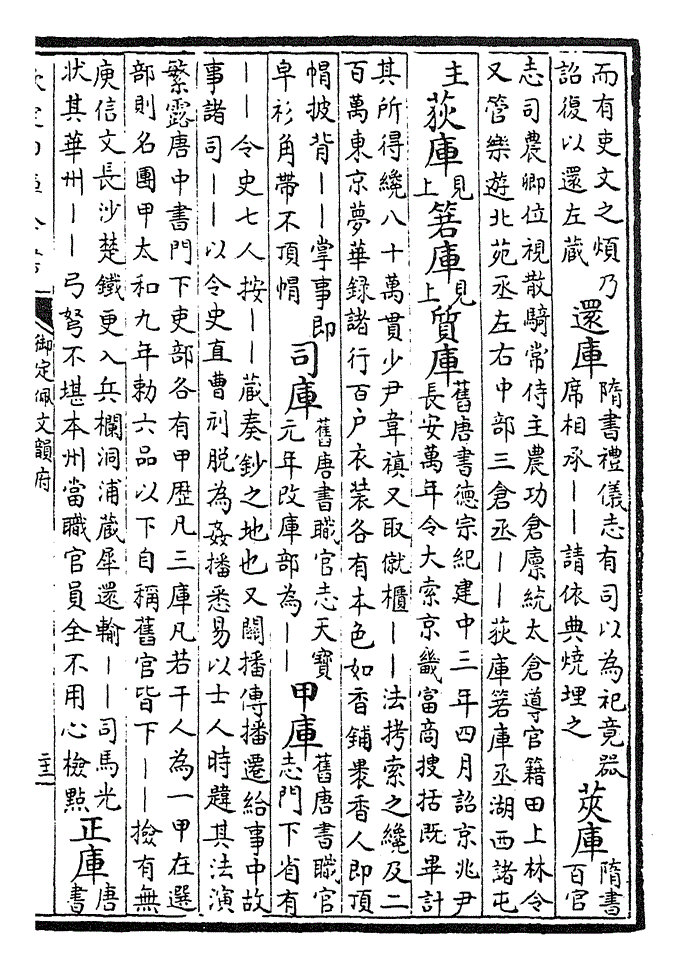 而有吏文之煩乃
詔復以還左蔵
還庫
隋書禮儀志有司以為祀竟器
席相承——請依典燒埋之
莢庫
隋書
百官
志司農卿位視散騎常侍主農功倉廪統太倉導官籍田上林令
又管樂遊北苑丞左右中部三倉丞——荻庫箬庫丞湖西諸屯
主
荻庫
見
上
箬庫
見
上
質庫
舊唐書德宗紀建中三年四月詔京兆尹
長安萬年令大索京畿富商搜括既畢計
其所得纔八十萬貫少尹韋禛又取僦櫃——法拷索之纔及二
百萬東京夢華録諸行百户衣装各有本色如香鋪裹香人即頂
帽披背——掌事即
皁衫角帶不頂帽
司庫
舊唐書職官志天寶
元年改庫部為——
甲庫
舊唐書職官
志門下省有
——令史七人按——蔵奏鈔之地也又關播傳播遷給事中故
事諸司——以令史直曹刓脱為姦播悉易以士人時韙其法演
繁露唐中書門下吏部各有甲歴凡三庫凡若干人為一甲在選
部則名團甲太和九年勅六品以下自稱舊官皆下——撿有無
庾信文長沙楚鐵更入兵欄洞浦蔵犀還輸——司馬光
状其華州——弓弩不堪本州當職官員全不用心檢點
正庫
唐
書
御定佩文韻府